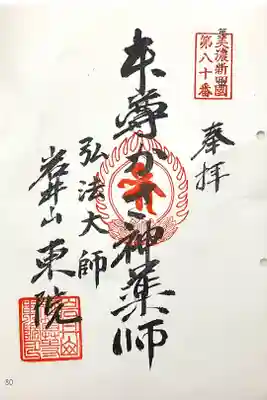 美濃新四国
第八十番
奉拝
本尊かさ神薬師
弘法大師
岩井山東院
80